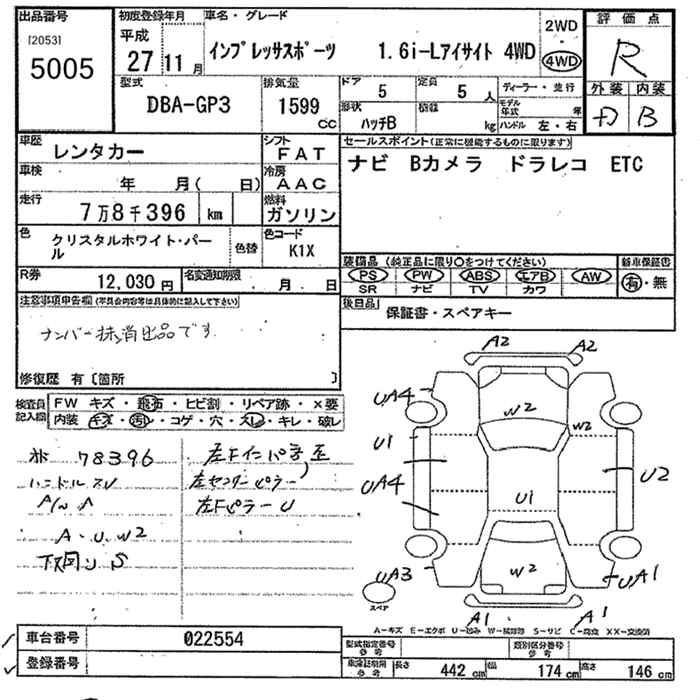 出品番号
[2053]
5005
初度登録年月
平成
27 11 月
車名・グレード
インプレッサスポーツ 1.6i-Lアイサイト 4WD
2WD
4WD
評価点
R
型式
DBA-GP3
排気量
1599
cc
ドア
5
定員
5 人
ディーラー・並行
モデル年式 年
形状
ハッチB
積載
kg
ハンドル 左・右
外装 内装
B
車歴
レンタカー
シフト
FAT
セールスポイント(正常に機能するものに限ります)
ナビ Bカメラ ドラレコ ETC
車検
年 月( 日)
冷房
AAC
走行
7万8千396 km
燃料
ガソリン
色
クリスタルホワイト・パール
色替
色コード
K1X
装備品 (純正品に限り○をつけてください)
PS PW ABS エアB AW
SR ナビ TV カワ
新車保証書
有・無
R券
12,030 円
名変通知期限
月 日
後日品
保証書・スペアキー
注意事項申告欄 (不具合内容等は具体的に記入して下さい)
ナンバー抹消出品です
修復歴 有〔箇所 〕
検査員記入欄
FW キズ・飛石・ヒビ割・リペア跡・×要
内装 キズ・汚レ・コゲ・穴・スレ・キレ・破レ
78396
ハンドルスレ
A/W A
A・U・W2
下回り S
左Fインパネ
左センターピラー
左Fピラー U
A2 A2
UA4
W2
W2
U1
UA4
U2
U1
UA3
W2
UA1
A1 A1
スペア
A-キズ E-エクボ U-凹み W-補修跡 S-サビ C-腐食 XX-交換済
車台番号
022554
登録番号
型式指定番号
参考
類別区分番号
参考
車検証引用
参考
長さ 442 cm 幅 174 cm 高さ 146 cm